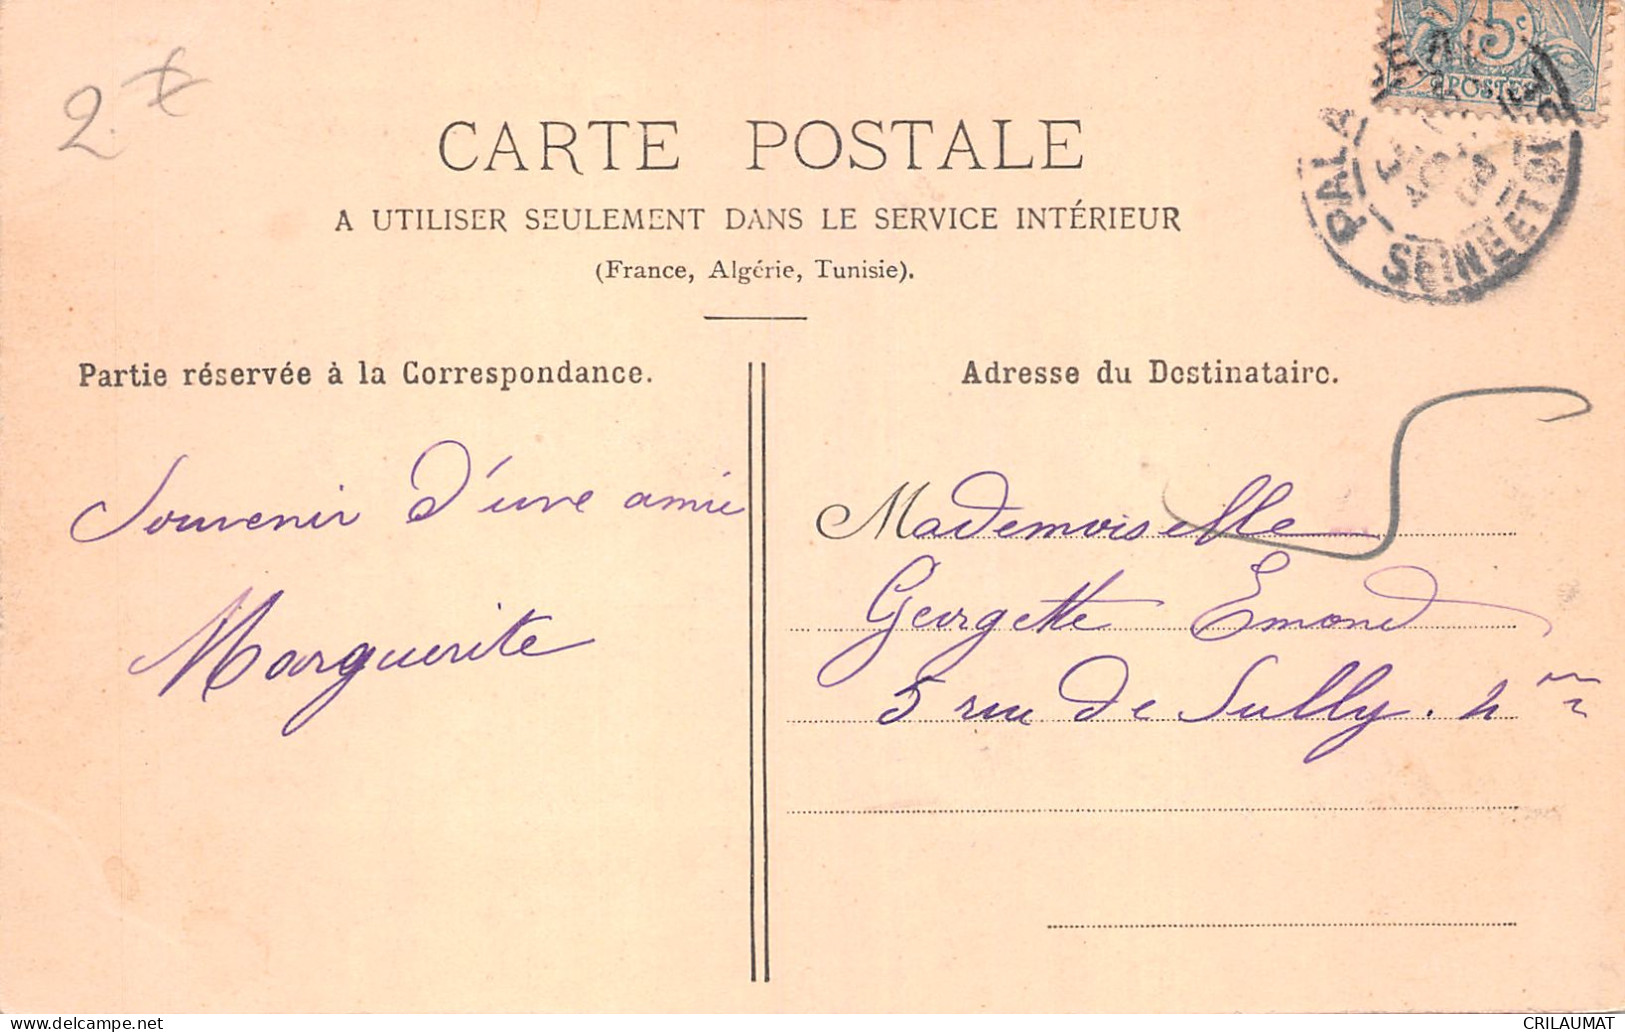 2.
5c
POSTES
PALA
SEINE ET OISE
CARTE POSTALE
A UTILISER SEULEMENT DANS LE SERVICE INTÉRIEUR
(France, Algérie, Tunisie).
Partie réservée à la Correspondance.
Adresse du Destinataire.
Souvenir d'une amie
Marguerite
Mademoiselle
Georgette Emond
5 rue de Sully.
CRILAUMAT